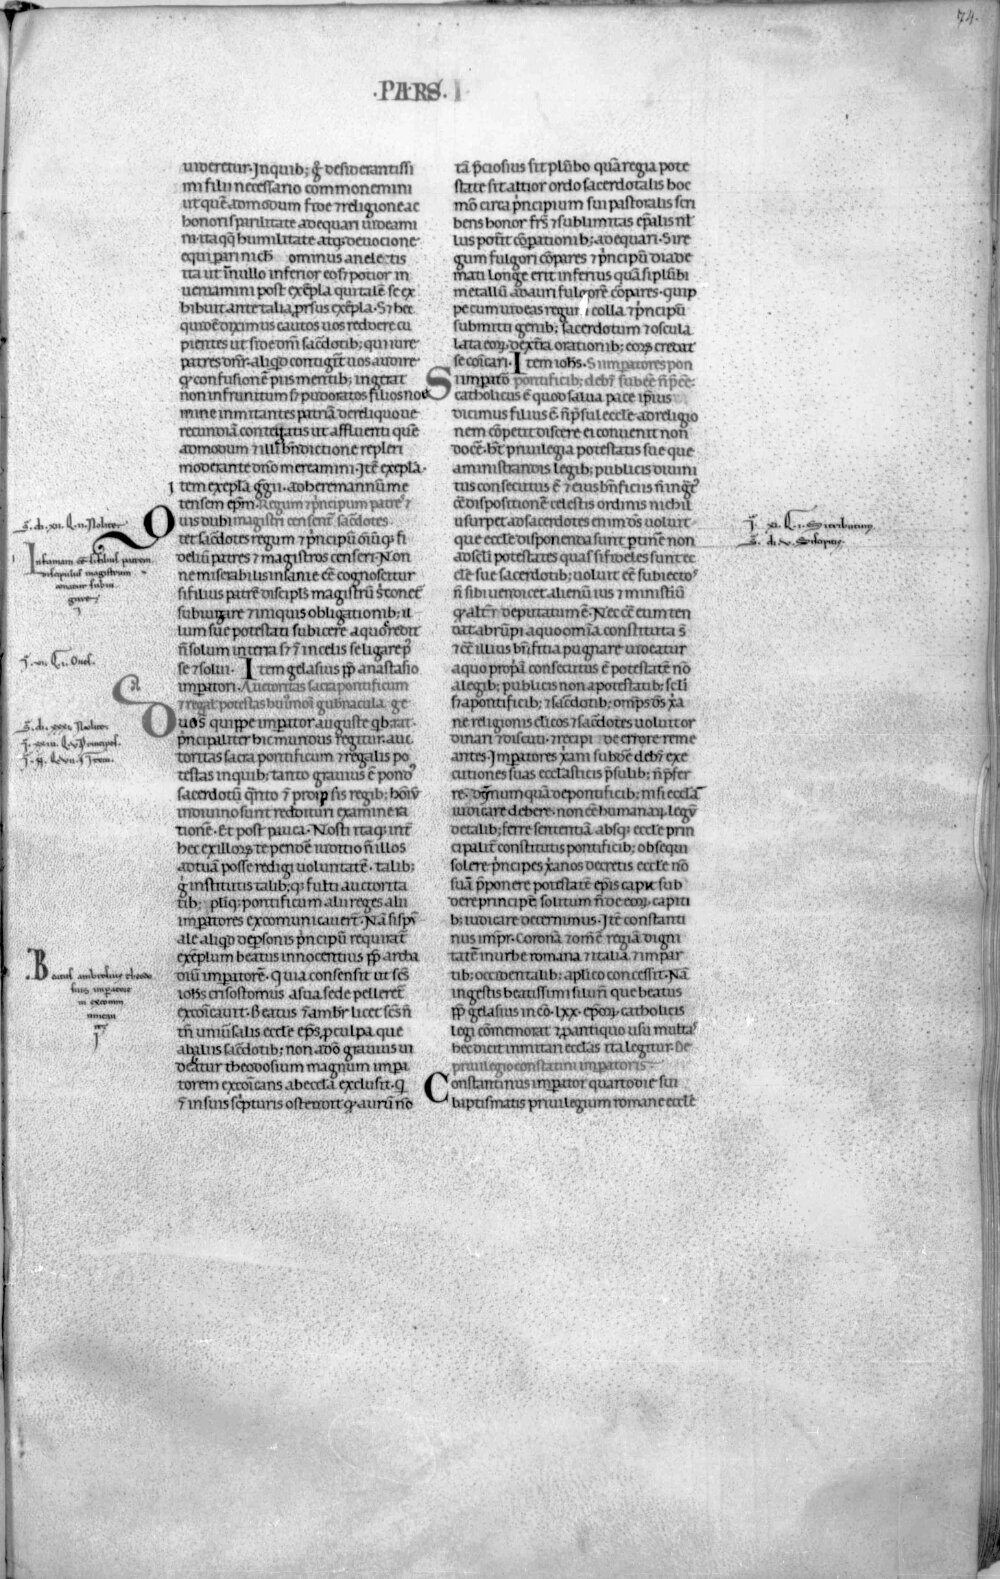 74.
·PARS· I
uideretur. Inquib; g̊ desiderantissi
mi filii necessario commonemini
ut quē admodum fide ⁊ religione ac
honoris parilitate adequari uideami
ni. ita q̨q̨ humilitate atq; deuocione
equiparinich ominus anele tis
ita ut ī nullo inferior eoꝝ potior in
ueniamini post exēpla qui talē se ex
hibuit ante talia p̱rsus exēpla. Sꝫ hec
quidē diximus cautos uos reddere cu
pientes ut fide om̄i sac̄dotib; qui iure
patres
q̨ confusionē piis mentib; ingerat
non infrunitum sꝫ pudoratos filios no
mine inmitantes patriā derelique
recundiā ut affluenti quē
admodum ⁊ illi bn̄dictione repleri
moderante dn̄o mereamini. Itē exēpla.
Item exēpla gg̃ii. ad heremannū me
tensem ep̄m. Regum ⁊ p̱ncipum patres ⁊
Quis dubi magistri censent̄ sac̄dotes.
tet sac̄dotes regum ⁊ p̱ncipū om̄iūq; fi
deliū patres ⁊ magistros censeri. Non
ne miserabilis insanie eē cognoscitur
si filius patrē discipl̄s magistrū s̄ conet̄
subiugare ⁊ iniquis obligationib; il
lum sue potestati subicere a quo credit
n̄ solum in terra sꝫ ⁊ in celis se ligari po
sse ⁊ solui. Item gelasius p̄p anastasio
imp̱atori. Auctoritas sacra pontificum
⁊ regal' potestas hui⁹ mundi gubnacula re
Duo s̄ quippe imp̱ator auguste qb; gat.
p̱ncipaliter hic mundus regitur. auc
toritas sacra pontificum ⁊ regalis po
testas in quib; tanto grauius ē pond⁹
sacerdotū q̨nto ⁊ pro ip̄sis regib; hoiū
in diuino sunt reddituri examine ra
tionē. Et post pauca. Nosti itaq; int̄
hec ex illoꝝ te pendē iudicio n̄ illos
ad tuā posse redigi uoluntatē. talib;
g̊ institutis talib;q̨ fulti auctorita
tib; pl̄iq; pontificum alii reges alii
imp̱atores excomunicauert̄. Nā si sp̄i
ale aliqd̄ de p̱sonis p̱ncipū requirat̄
exēplum beatus innocentius p̄p archa
diū imp̱atorē. Quia consensit ut sc̄s
ioh̄s crisostomus a sua sede pelleret̄
excōicauit. Beatus ⁊ ambr̄ licet sc̄s n̄
tn̄ uniūsalis eccl̄e ep̄s. p̱ culpa que
ab aliis sac̄dotib; non adō grauius ui
deatur theodosium magnum imp̱a
torem excōicans ab eccl̄ia exclusit. q̨
⁊ in suis sc̱pturis ostendit q̨ aurū nō
tā p̄ciosius sit plūbo quā regia pote
state sit altior ordo sacerdotalis hoc
mō circa p̱ncipium sui pastoralis scri
bens honor fr̄s ⁊ sublimitas ep̄alis nł
lus potīt cōp̱ationib; adequari. Si re
gum fulgori cōpares ⁊ p̱ncipū diade
mati longe erit inferius quā si plūbi
metallū ad auri fulgorē cōpares. quip
pe cum uideas regum colla ⁊ p̱ncipū
submitti genib; sacerdotum ⁊ oscula
lata eoꝝ dextra orationib; eoꝝ credāt
se cōicari. Item ioh̄s. Si imp̱atores pon
Si imp̱ator pontificib; debꝫ subeē n̄ p̄eē:
catholicus ē quod salua pace ip̄ius
dicimus filius ē n̄ p̄sul eccl̄e. ad religio
nem cōpetit discere ei conuenit non
docē. hꝫ priuilegia potestatis sue que
aministrandis legib; publicis diuini
tus consecutus ē ⁊ eius bn̄ficiis n̄ ingrat⁹
cōtra dispositionē celestis ordinis nichil
usurpet. ad sacerdotes enim ds̄ uoluit.
que eccl̄e disponenda sunt p̱tinē. non
ad sc̄li potestates quas si fideles sunt ec
cl̄e sue sacerdotib; uoluit eē subiectos
n̄ sibi uendicet alienū ius ⁊ ministiū
q̨ alt̄i deputatum ē. Nec cētra eum ten
dat abrūpi a quo omīa constituta s̄
⁊ cētra illius bn̄fitia pugnare uideatur
a quo propā consecutus ē potestatē nō
a legib; publicis non a potestatib; sc̄li
sꝫ a pontificib; ⁊ sac̄dotib; omp̄s ds̄ xa
ne religionis cl̄icos ⁊ sac̄dotes uoluit or
dinari ⁊ discuti. ⁊ recipi de errore reme
antes. Imp̱atores x̄ani subdē debꝫ exe
cutiones suas eccl̄asticis p̄sulib; n̄ p̄fer
re. dignum quā de pontificib; nisi eccl̄ia
iudicare debere. non ēē humanaꝝ legū
de talib; ferre sententiā absq; eccl̄e prin
cipalit̄ constitutis pontificib; obsequi
solere p̱ncipes x̄anos decretis eccl̄e nō
suā p̄ponere potestatē. ep̄is caput sub
dere principē solitum n̄ de eoꝝ capiti
b; iudicare decernimus. Itē constanti
nus imp̄r. Coronā ⁊ om̄ē regiā digni
tatē in urbe romana ⁊ italia ⁊ in par
tib; occidentalib; ap̄lico concessit. Nā
in gestis beatissimi siluīi que beatus
p̄p gelasius in cō. lxx. ep̄oꝝ catholicis
legi cōmemorat ⁊ p̱ antiquo usu multas
hec dicit inmitari eccl̄ias ita legitur. De
priuilegio constatini imp̱atoris
Constantinus imp̱ator quarto die sui
baptismatis priuilegium romane eccl̄e
Infamam eē si filius patrem
discipulus magistrum
conatur subiu
gare
Beatus ambrosius theodo
sium imp̱atorē
in excomm
unicau
it